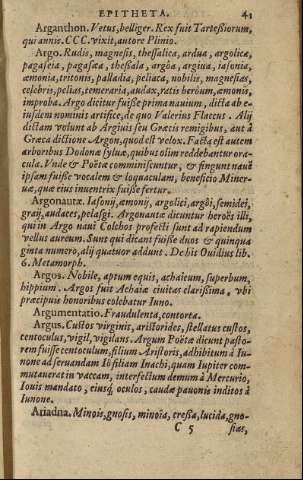 EPITHETA. 41
Arganthon. Vetus, belliger. Rex fuit Tarteßiorum,
qui annis. CCC. vixit, autore Plinio.
Argo. Rudis, magnesis, theßalica, ardua, argolica,
pagaseia, pagasæa, theßala, argôa, argiua, iasonia,
æmonia, tritonis, palladia, peliaca, nobilis, magnesias,
celebris, pelias, temeraria, audax, ratis heroûm, æmonis,
improba. Argo dicitur fuiße prima nauium, dicta ab e-
iusdem nominis artifice, de quo Valerius Flaccus. Alij
dictam volunt ab Argiuis seu Græcis remigibus, aut à
Græca dictione Argon, quod est velox. Facta est autem
arboribus Dodonæ syluæ, quibus olim reddebantur ora-
cula. Vnde & Poëtæ comminiscuntur, & fingunt nauē
ipsam fuiße vocalem & loquaculam, beneficio Miner-
uæ, quæ eius inuentrix fuiße fertur.
Argonautæ. Iasonij, æmonij, argolici, argôi, semidei,
graij, audaces, pelasgi. Argonautæ dicuntur heroës illi,
qui in Argo naui Colchos profecti sunt ad rapiendum
vellus aureum. Sunt qui dicant fuiße duos & quinqua
ginta numero, alij quatuor addunt. De his Ouidius lib.
6. Metamorph.
Argos. Nobile, aptum equis, achaicum, superbum,
hippium. Argos fuit Achaiæ ciuitas clarißima, vbi
præcipuis honoribus colebatur Iuno.
Argumentatio. Fraudulenta, contorta.
Argus. Custos virginis, aristorides, stellatus custos,
centoculus, vigil, vigilans. Argum Poëtæ dicunt pasto-
rem fuiße centoculum, filium Aristoris, adhibitum à Iu-
none ad seruandam Iô filiam Inachi, quam Iupiter com-
mutauerat in vaccam, interfectum demum à Mercurio,
Iouis mandato, eiusq; oculos, caudæ pauonis inditos à
Iunone.
Ariadna. Minois, gnosis, minoïa, creßa, lucida, gno-
C 5 sias,